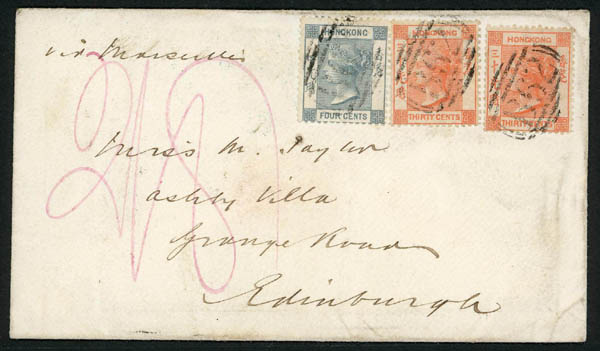 HONGKONG
FOUR CENTS
HONGKONG
THIRTY CENTS
HONGKONG
THIRTY CENTS
via Marseilles
Miss M. Taylor
Ashby Villa
Grange Road
Edinburgh